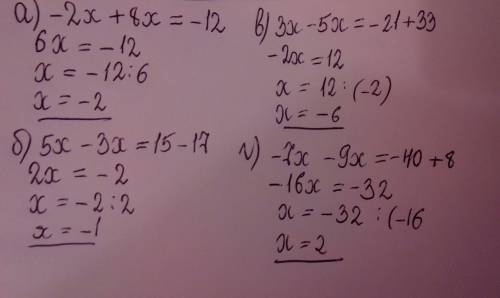 а) -2x + 8x = -12
6x = -12
x = -12:6
x = -2
б) 5x - 3x = 15 - 17
2x = -2
x = -2:2
x = -1
в) 3x - 5x = -21 + 33
-2x = 12
x = 12 : (-2)
x = -6
г) -7x - 9x = -40 + 8
-16x = -32
x = -32 : (-16
x = 2